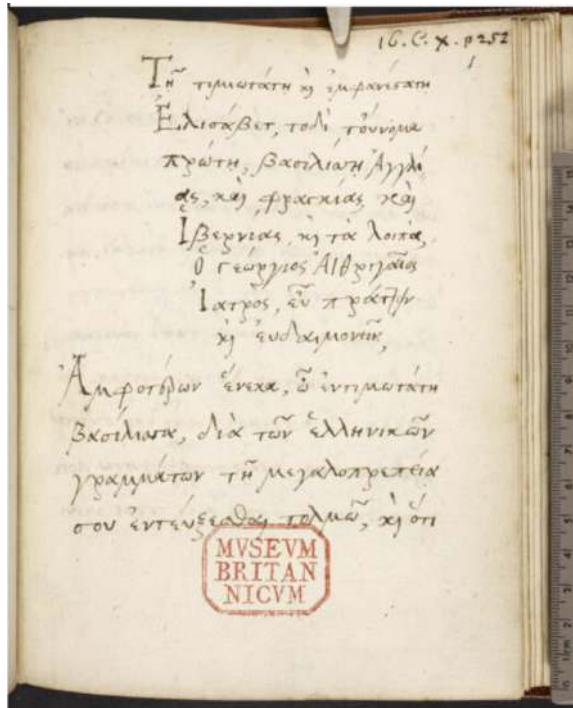 16. C. X. p 252
1
Τῆ τιμιωτάτη κỳ ἐμφανεστάτη
Ἐλισάβετ, τοδὶ τοὔνομα
πρώτη, βασιλίσση Ἀγγλί-
ας, καὶ φραγκίας καὶ
Ἰβερνίας, κỳ τὰ λοιπὰ,
ὁ Γεώργιος Αἰθριγαῖος
Ἰατρὸς, εὖ πράττειν
κỳ εὐδαιμονεῖν,
Ἀμφοτέρων ἕνεκα, ὦ ἐντιμωτάτη
βασίλισσα, διὰ τῶν ἑλληνικῶν
γραμμάτων τῆ μεγαλοπρεπεία
σου ἐντεύξεσθαι τολμῶ, κỳ ὅτι
MVSEVM
BRITAN
NICVM